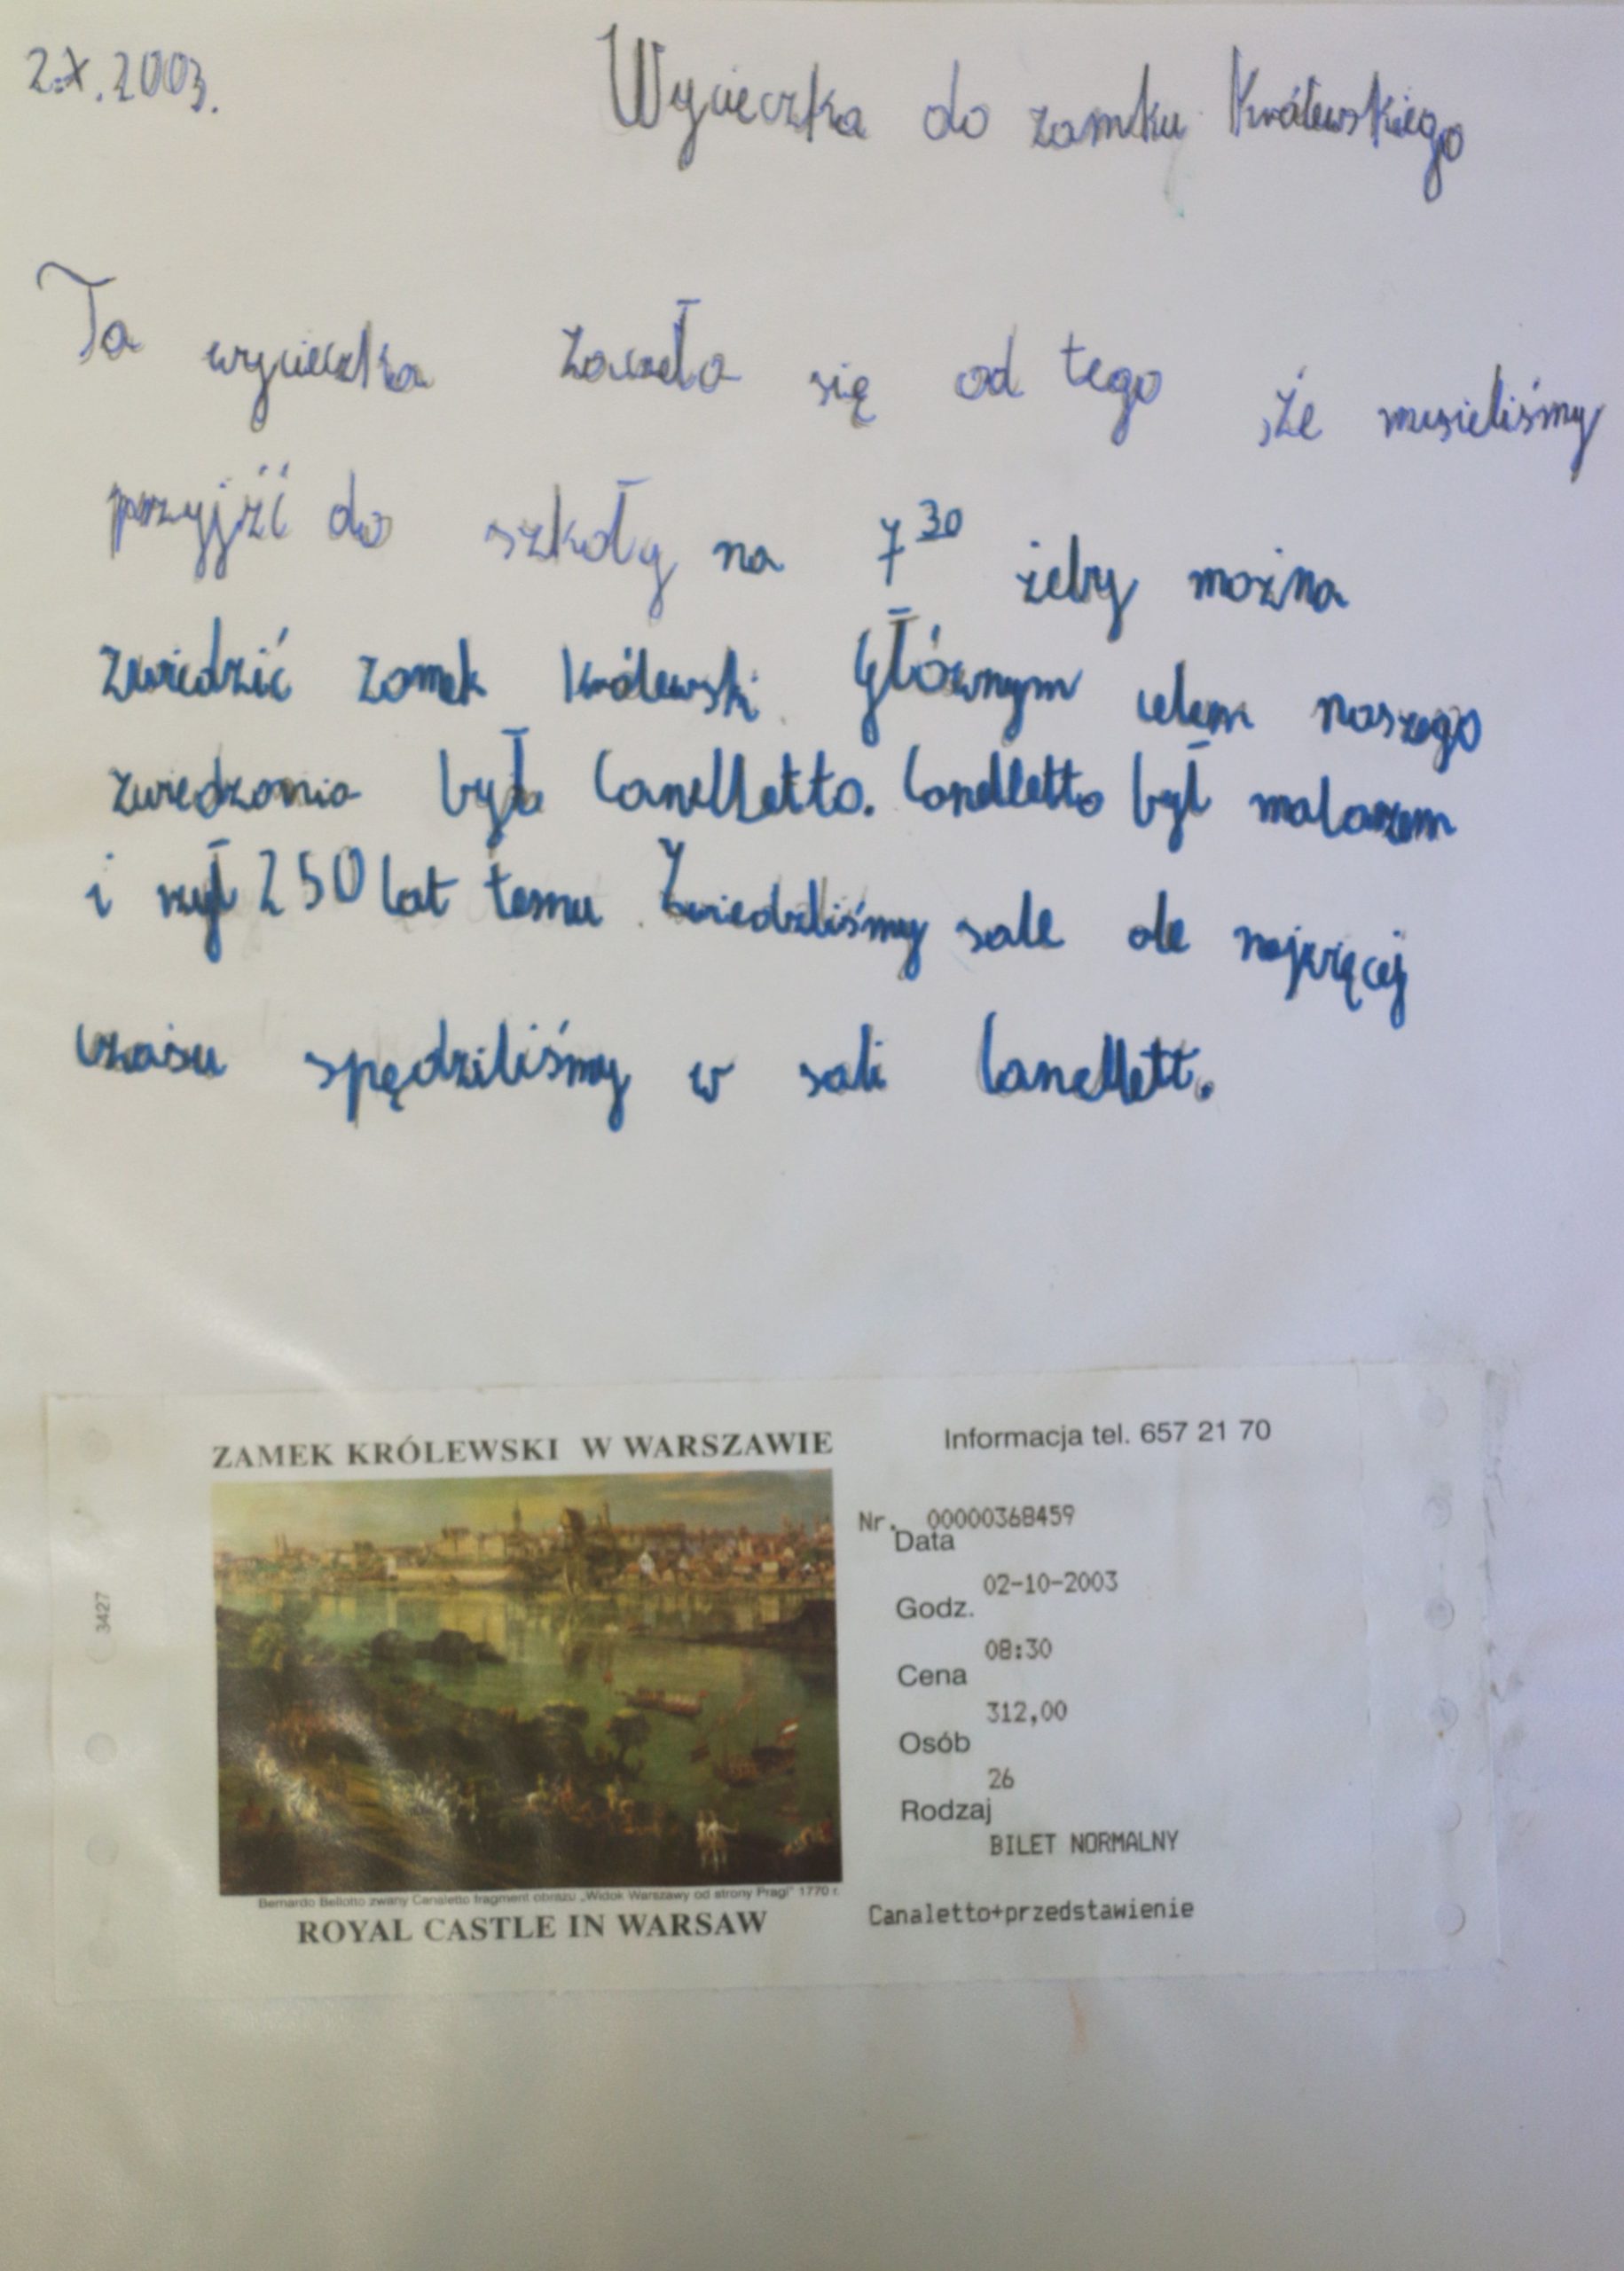 2.X.2003.
Wycieczka do zamku Królewskiego
Ta wycieczka zaczeła się od tego że musieliśmy
przyjźć do szkoły na 7 30 żeby można
zwiedzić zamek Królewski. Głównym celem naszego
zwiedzania był Canelletto. Canelletto był malarzem
i żył 250 lat temu. Zwiedziliśmy sale ale najwięcej
czasu spędziliśmy w sali Canellett.
ZAMEK KRÓLEWSKI W WARSZAWIE
Informacja tel. 657 21 70
Nr. 00000368459
Data
02-10-2003
Godz.
08:30
Cena
312,00
Osób
26
Rodzaj
BILET NORMALNY
3427
Bernardo Bellotto zwany Canaletto fragment obrazu „Widok Warszawy od strony Pragi" 1770 r.
ROYAL CASTLE IN WARSAW
Canaletto+przedstawienie